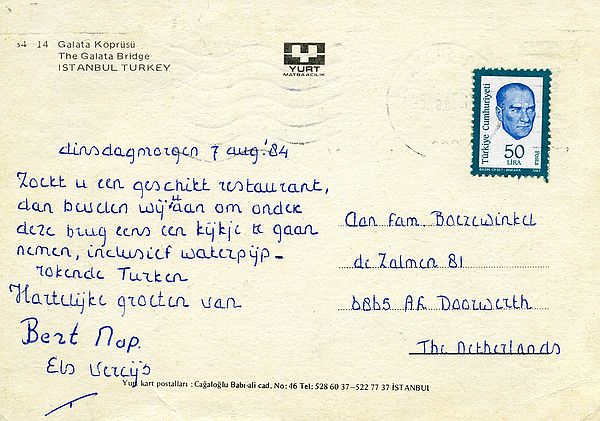 34 14 Galata Köprüsü
The Galata Bridge
ISTANBUL TURKEY
YURT
MATBAACILIK
Türkiye Cumhuriyeti
50
LİRA
Posta
dinsdagmorgen 7 aug.'84
Zoekt u een geschikt restaurant,
dan bevelen wij u aan om onder
deze brug eens een kijkje te gaan
nemen, inclusief waterpijp-
rokende Turken
Hartelijke groeten van
Bert Nop.
Els Vercijs
Aan fam. Boerewinkel
de Zalmen 81
6865 AR Doorwerth
The Netherlands
Yurt kart postalları : Cağaloğlu Babı-ali cad, No: 46 Tel: 528 60 37-522 77 37 İSTANBUL